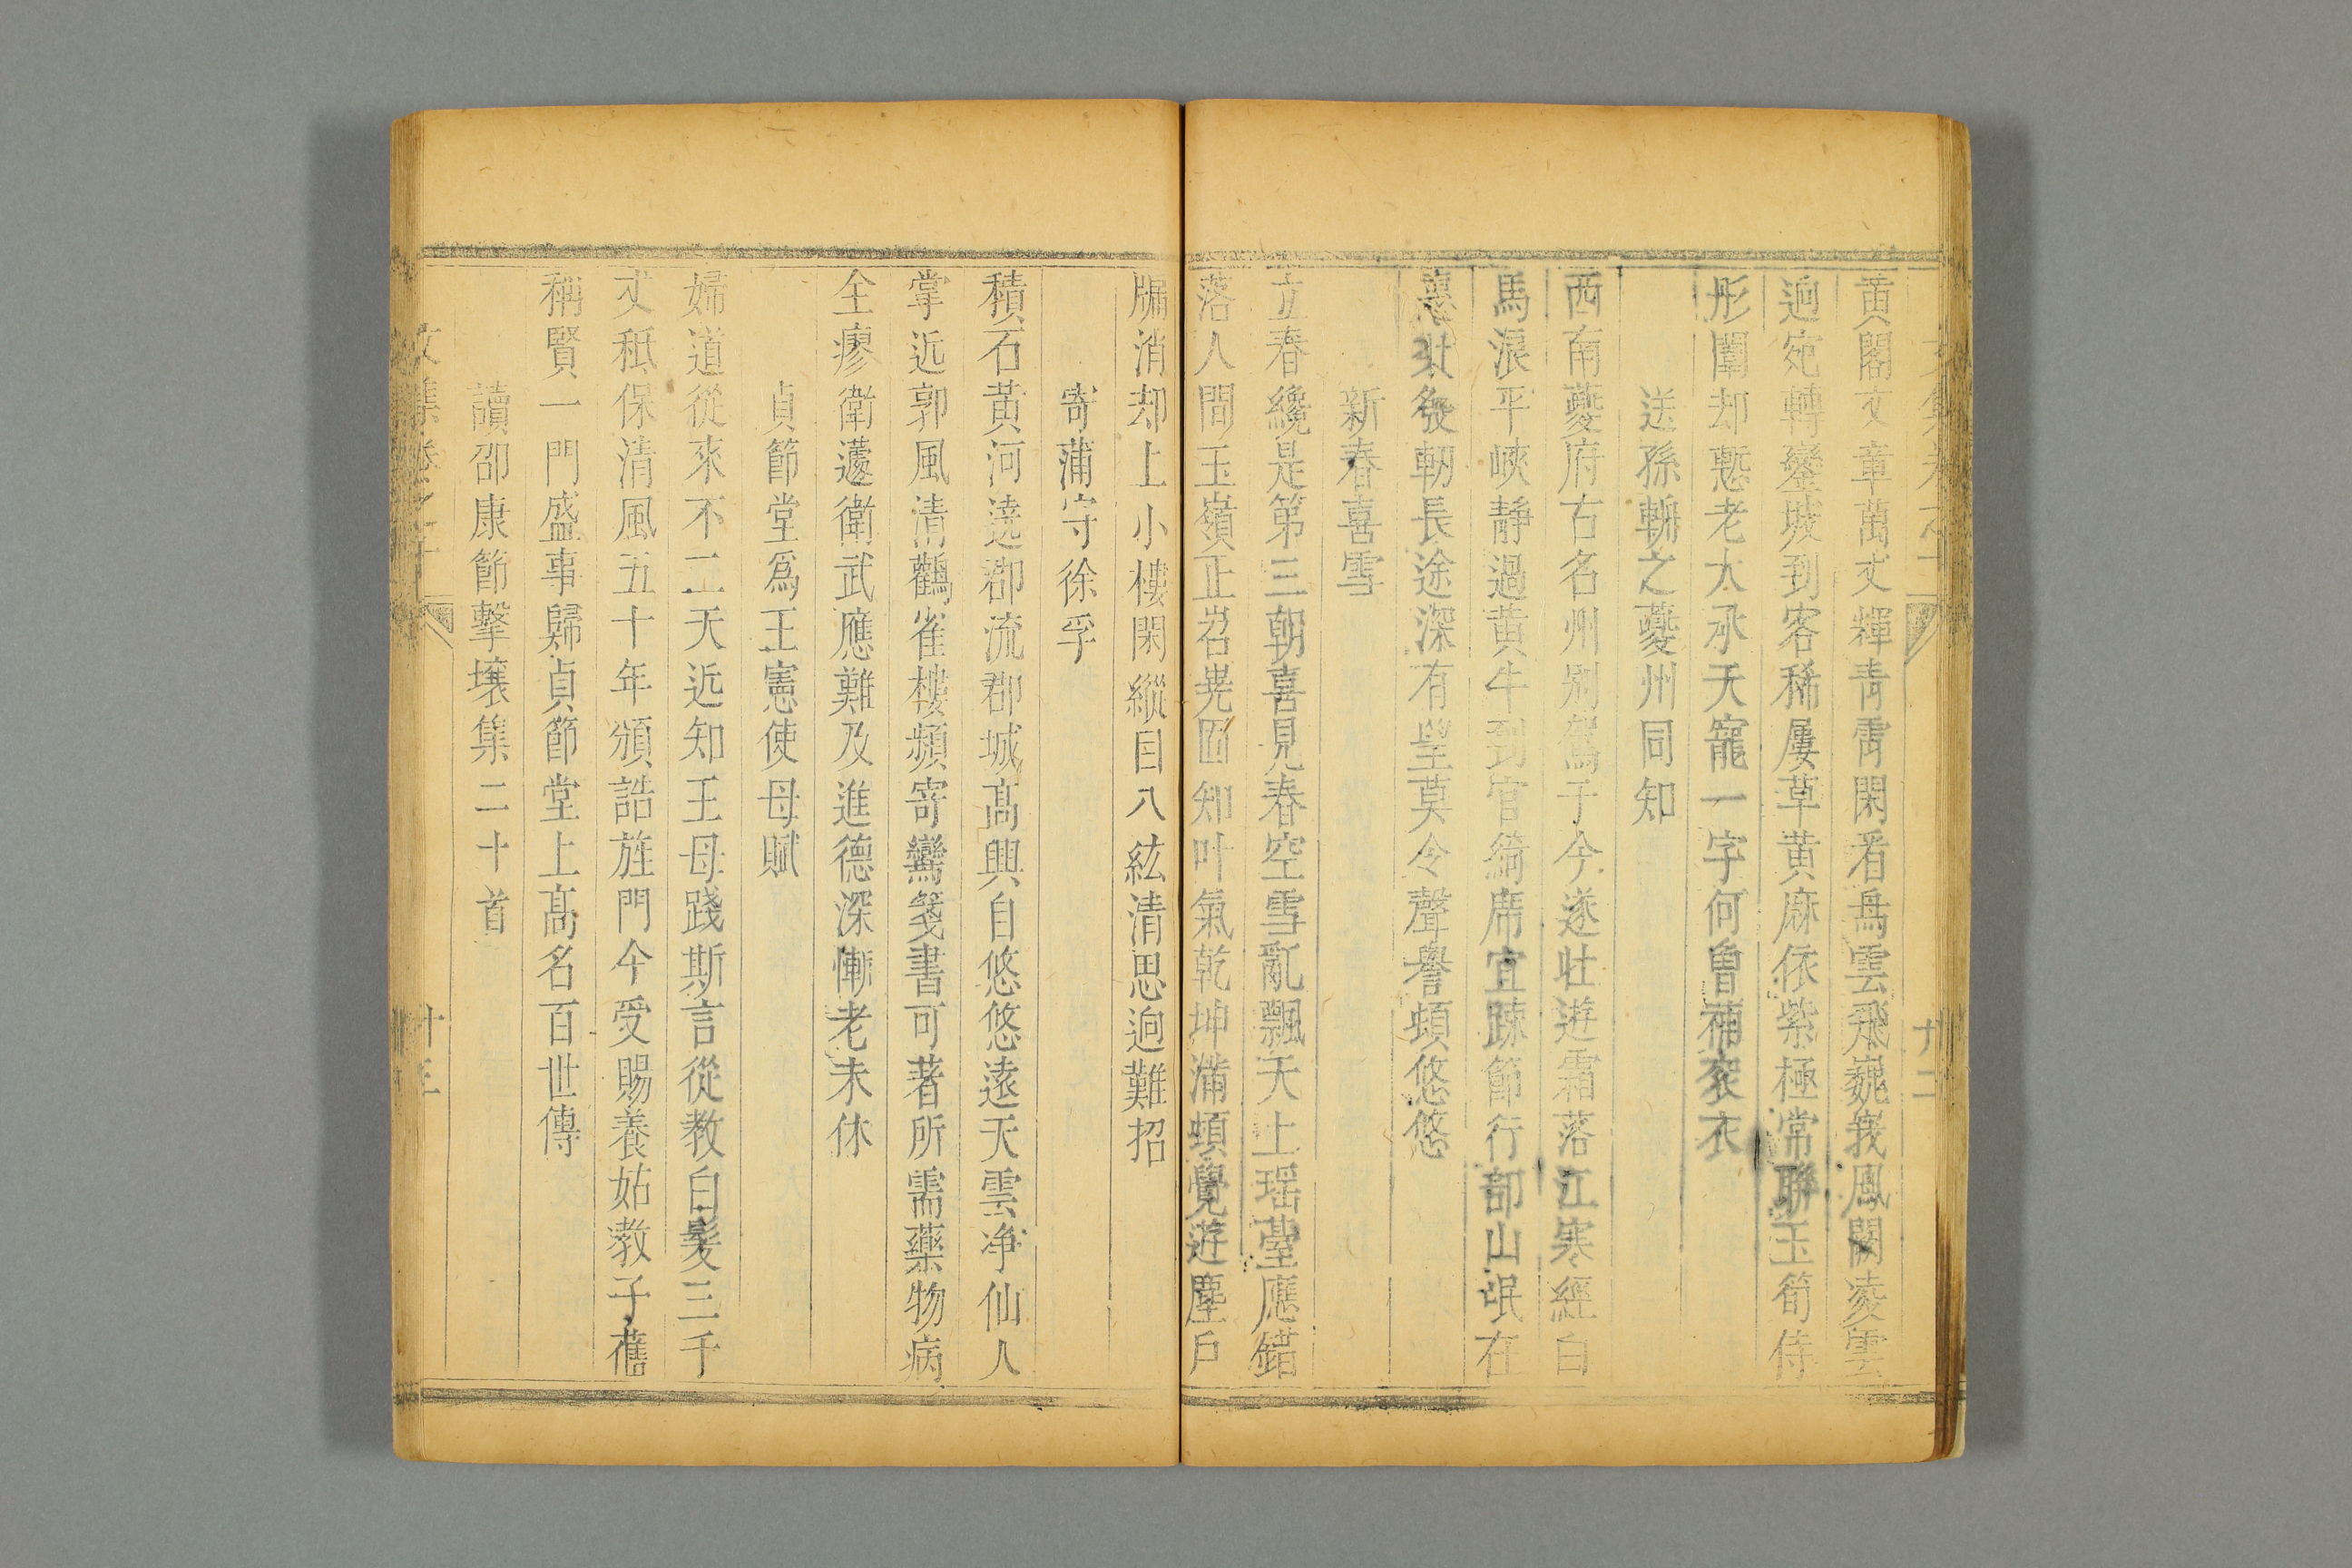 黄閣文章萬丈輝青霄閑看鳥雲飛巍峩鳳闕凌雲
逈宛轉鑾坡到客稀屢草黄麻依紫極常聯玉筍侍
彤闈却慙老大承天寵一字何曾補衮衣
送孫朝之夔州同知
西南夔府古名州別駕于今遂壮遊霜落江寒經白
馬浪平峽静過黄牛到官綺席宜踈節行部山氓在
長途深有望莫令聲譽頓悠悠
新春喜雪
立春纔是第三朝喜見春空雪亂飄天上瑶臺應錯
落人間玉嶺正岧嶤囬知叶氣乾坤滿頓覺遊塵户
牖消却上小樓閑縱目八紘清思逈難招
寄蒲守徐孚
積石黄河遶郡流郡城髙興自悠悠遠天雲浄仙人
掌近郭風清鸛雀樓頻寄鸞箋書可著所需藥物病
全瘳衛蘧衛武應難及進德深慚老未休
貞節堂爲王憲使母賦
婦道從來不二天近知王母踐斯言從教白髪三千
丈秪保清風五十年頒誥旌門今受賜養姑教子舊
稱賢一門盛事歸貞節堂上髙名百世傳
讀邵康節擊壤集二十首
文集卷之十
十三